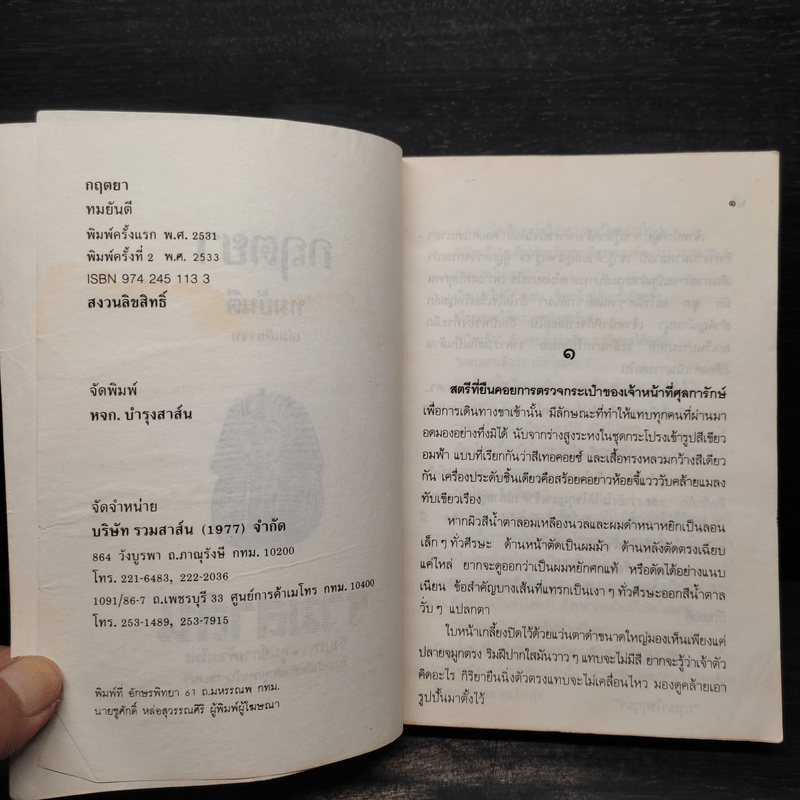 กฤตยา
ทมยันตี
พิมพ์ครั้งแรก พ.ศ. 2531
พิมพ์ครั้งที่ 2 พ.ศ. 2533
ISBN 974 245 113 3
สงวนลิขสิทธิ์
จัดพิมพ์
หจก. บำรุงสาส์น
จัดจำหน่าย
บริษัท รวมสาส์น (1977) จำกัด
864 วังบูรพา ถ.ภาณุรังษี กทม. 10200
โทร. 221-6483, 222-2036
1091/86-7 ถ.เพชรบุรี 33 ศูนย์การค้าเมโทร กทม. 10400
โทร. 253-1489, 253-7915
พิมพ์ที่ อักษรพิทยา 61 ถ.มหรรณพ กทม.
นายชูศักดิ์ หล่อสุวรรณศิริ ผู้พิมพ์ผู้โฆษณา
๑
๑
สตรีที่ยืนคอยการตรวจกระเป๋าของเจ้าหน้าที่ศุลการักษ์
เพื่อการเดินทางขาเข้านั้น มีลักษณะที่ทำให้แทบทุกคนที่ผ่านมา
อดมองอย่างทึ่งมิได้ นับจากร่างสูงระหงในชุดกระโปรงเข้ารูปสีเขียว
อมฟ้า แบบที่เรียกกันว่าสีเทอคอยซ์ และเสื้อทรงหลวมกว้างสีเดียว
กัน เครื่องประดับชิ้นเดียวคือสร้อยคอยาวห้อยจี้แวววับคล้ายแมลง
ทับเขียวเรือง
หากผิวสีน้ำตาลอมเหลืองนวลและผมดำหนาหยิกเป็นลอน
เล็ก ๆ ทั่วศีรษะ ด้านหน้าตัดเป็นผมม้า ด้านหลังตัดตรงเฉียบ
แค่ไหล่ ยากจะดูออกว่าเป็นผมหยักศกแท้ หรือดัดได้อย่างแนบ
เนียน ข้อสำคัญบางเส้นที่แทรกเป็นเงา ๆ ทั่วศีรษะออกสีน้ำตาล
วับ ๆ แปลกตา
ใบหน้าเกลี้ยงปิดไว้ด้วยแว่นตาดำขนาดใหญ่มองเห็นเพียงแค่
ปลายจมูกตรง ริมฝีปากใสมันวาว ๆ แทบจะไม่มีสี ยากจะรู้ว่าเจ้าตัว
คิดอะไร กิริยายืนนิ่งตัวตรงแทบจะไม่เคลื่อนไหว มองดูคล้ายเอา
รูปปั้นมาตั้งไว้